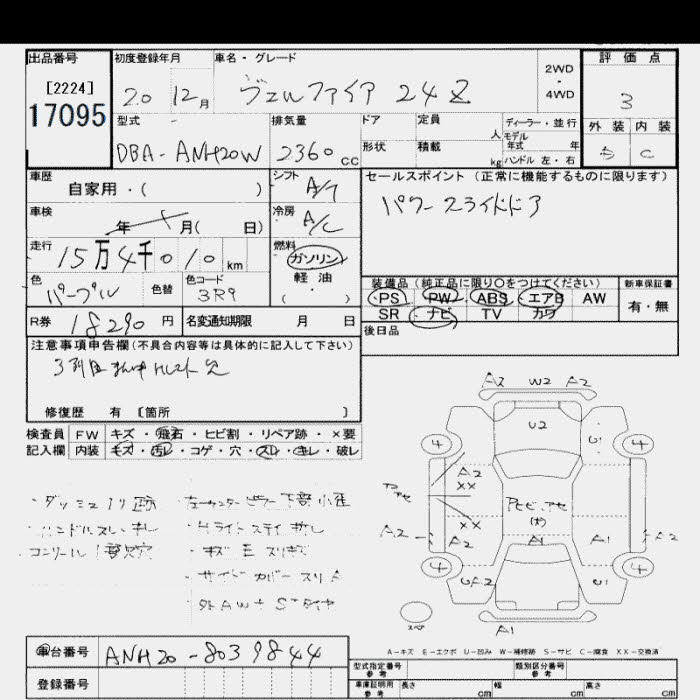 出品番号
[2224]
17095
初度登録年月
20 12月
車名・グレード
ヴェルファイア 24Z
2WD
・
4WD
評価点
3
外装 内装
C
型式
DBA-ANH20W
排気量
2360 cc
ドア
形状
定員
人
積載
kg
ディーラー・並行
モデル
年式 年
ハンドル 左・右
車歴
自家用・( )
シフト
A/T
セールスポイント (正常に機能するものに限ります)
パワースライドドア
車検
年 月( 日)
冷房
A/C
走行
15万4千010km
燃料
ガソリン
軽・油
( )
色
パープル
色替
色コード
3R9
装備品 (純正品に限り○をつけてください)
PS PW ABS エアB AW
SR ナビ TV カワ
新車保証書
有・無
R券
18290 円
名変通知期限 月 日
後日品
注意事項申告欄 (不具合内容等は具体的に記入して下さい)
修復歴 有 [箇所 ]
検査員 FW キズ・飛石・ヒビ割・リペア跡・×要
記入欄 内装 キズ・汚レ・コゲ・穴・スレ・キレ・破レ
・ダッシュ 跡
・ハンドルスレ
・サイドカバー スリ
A2 W2 A2
U2
U
4 4
A2
XX
XX
A2 A2
A1 A1
A2
4 4
UA2 U1
スペア
A1
A-キズ E-エクボ U-凹み W-補修跡 S-サビ C-腐食 XX-交換済
車台番号
ANH20-8039844
登録番号
型式指定番号
参考
類別区分番号
参考
車庫証明用
参考
長さ cm 幅 cm 高さ cm